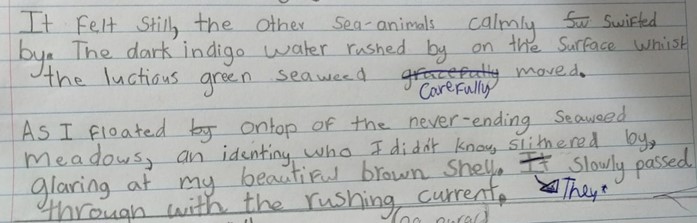 It felt still, the other sea-animals calmly Sw swifted
by. The dark indigo water rushed by on the surface whist
the luctious green seaweed gracefully moved.
Carefully
As I floated by ontop of the never-ending seaweed
meadows, an identiny who I didn't know slithered by,
glaring at my beautiful brown shell. It slowly passed
They
through with the rushing current.